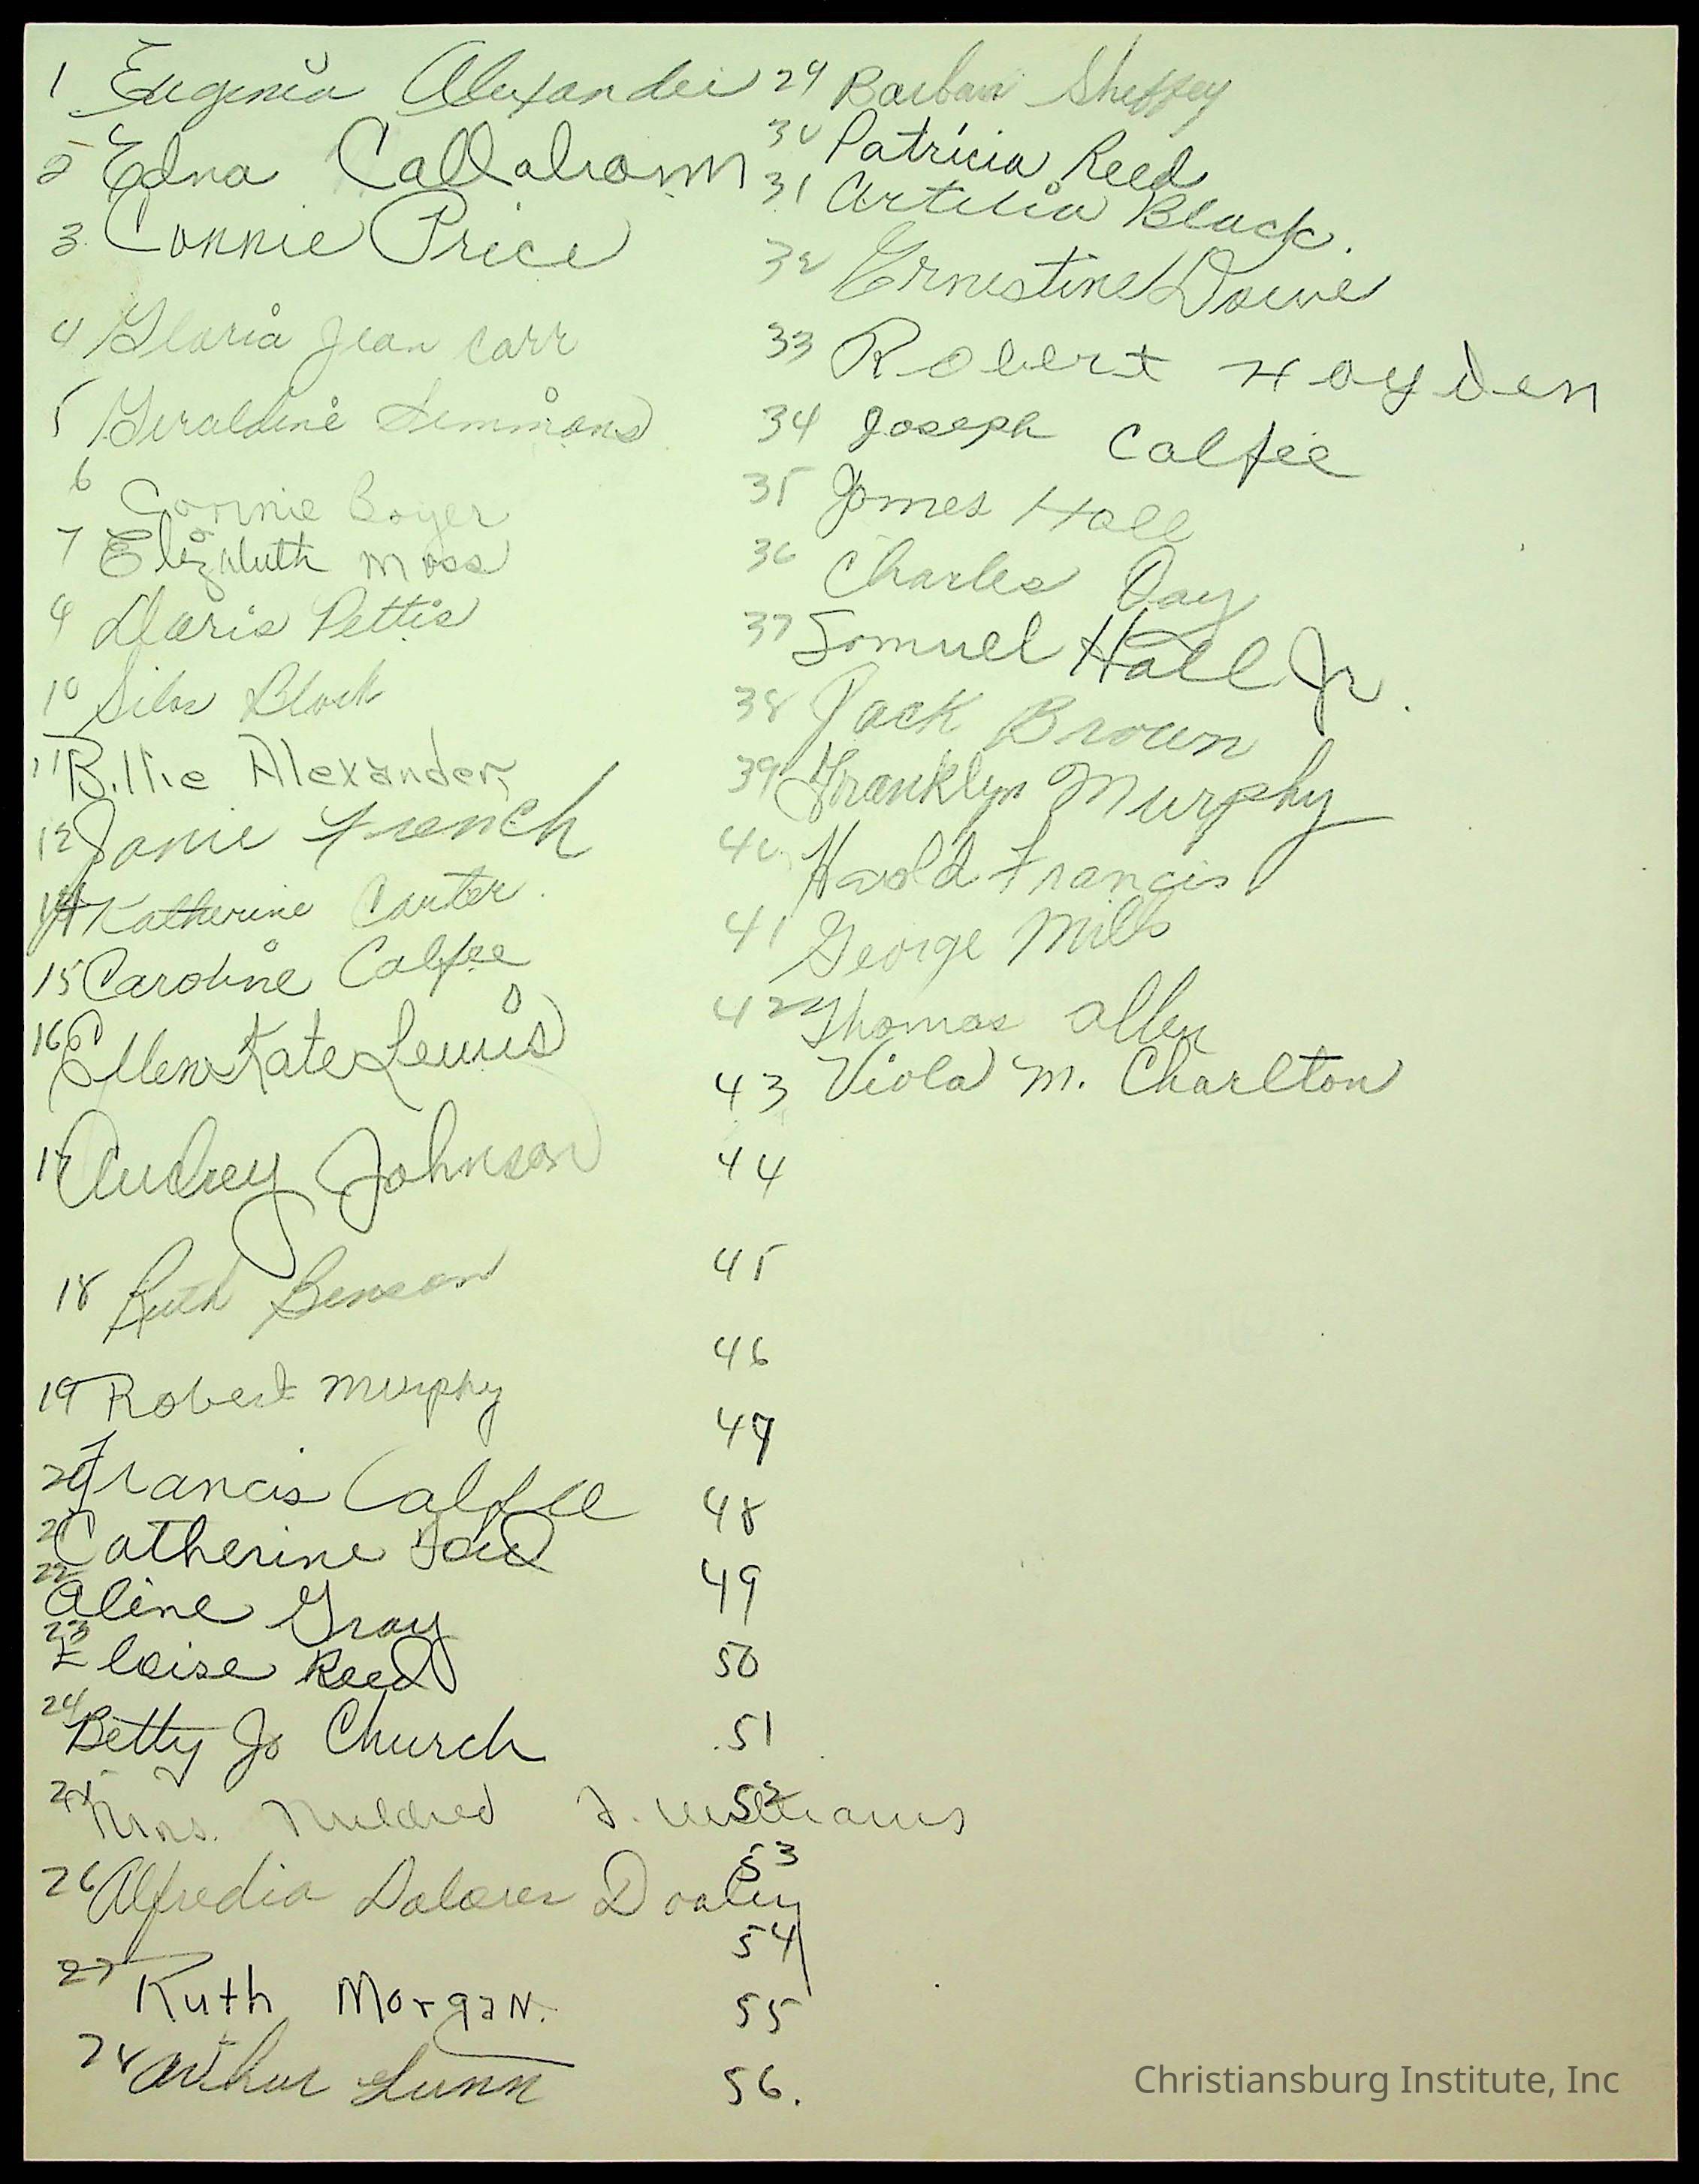 1 Eugenia Alexander
2 Edna Callaham
3. Connie Price
4 Gloria Jean Carr
5 Geraldine Simmons
6 Connie Boyer
7 Elizabeth Moss
9 Doris Pettis
10 Silas Black
11 Billie Alexander
12 Janie French
14 Katherine Carter.
15 Caroline Calfee
16 Ellen Kate Lewis
17 Audrey Johnson
18 Ruth Benson
19 Robert Murphy
20 Francis Calfee
21 Catherine
22 Aline Gray
23 Eloise Reed
24 Betty Jo Church
25 Mrs. Mildred J. Williams
26 Alfredia Dolores Dooley
27 Ruth Morgan.
28 Arthur Lunn
29 Barbara Sheffey
30 Patricia Reed
31 Artelia Black.
32 Ernestine Dowe
33 Robert Hayden
34 Joseph Calfee
35 James Hall
36 Charles Day
37 Samuel Hall Jr.
38 Jack Brown
39 Franklyn Murphy
40 Harold Francis
41 George Mills
42 Thomas Allen
43 Viola M. Charlton
44
45
46
47
48
49
50
51
52
53
54
55
56.
Christiansburg Institute, Inc